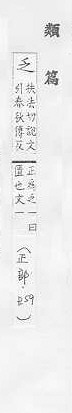 類篇
乏
扶法切說文
引春秋傳反
正為乏一曰
匱也文一
（正部·P.59）